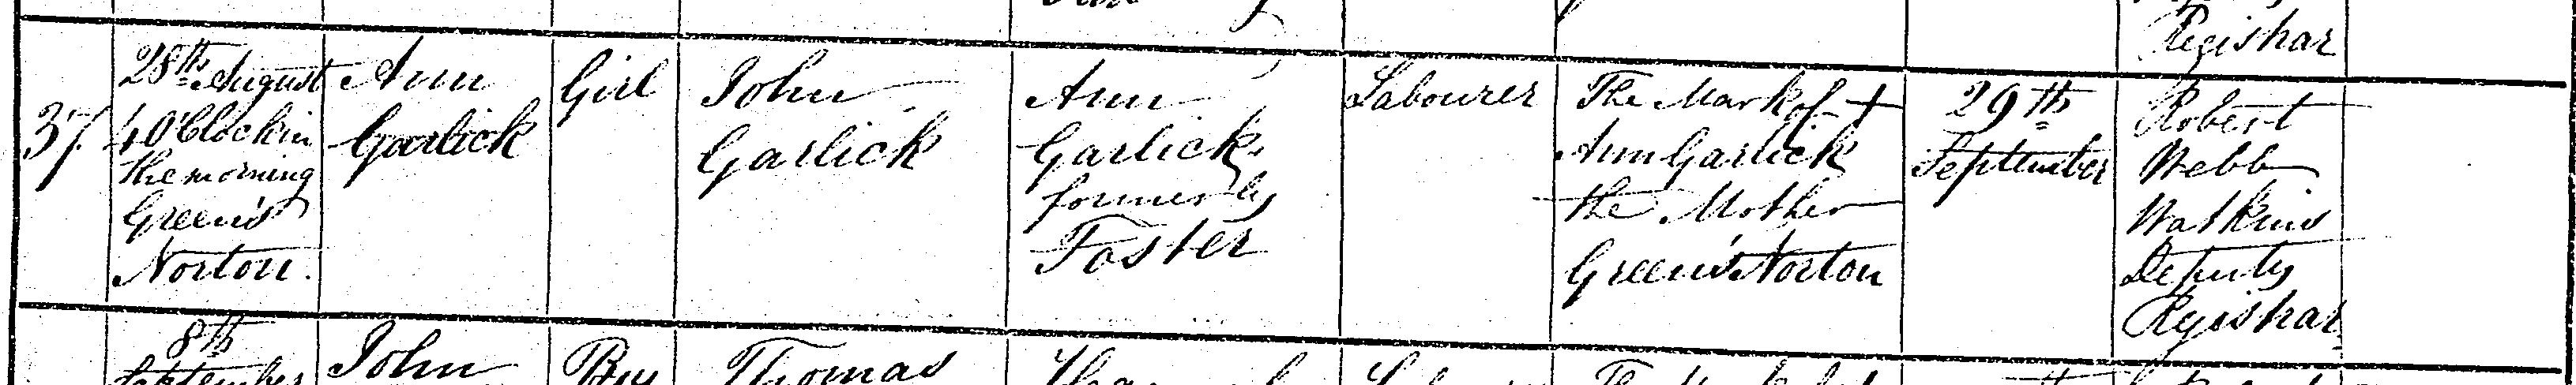 Registrar
37
28th August
4 O'Clock in
the morning
Green's
Norton.
Ann
Garlick
Girl
John
Garlick
Ann
Garlick
formerly
Foster
Labourer
The Mark of +
Ann Garlick
the Mother
Green's Norton
29th
September
Robert
Webb
Watkins
Deputy
Registrar
8th
September
John
Boy
Thomas